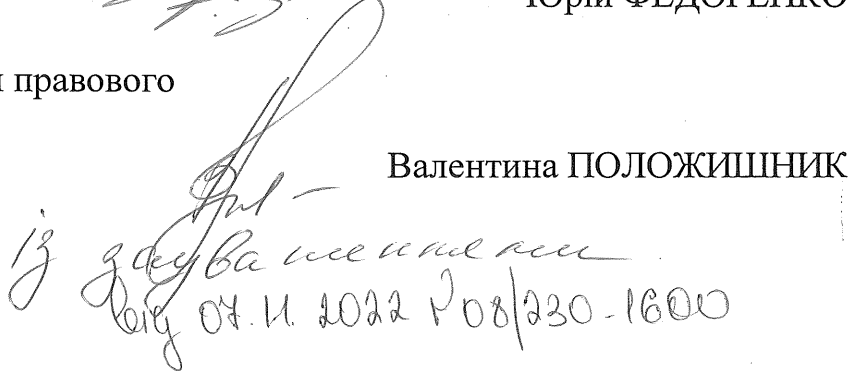 Юрій ФЕДОРЕНКО
правового
Валентина ПОЛОЖИШНИК
із зауваженнями
від 07.11.2022 № 08/230-1600